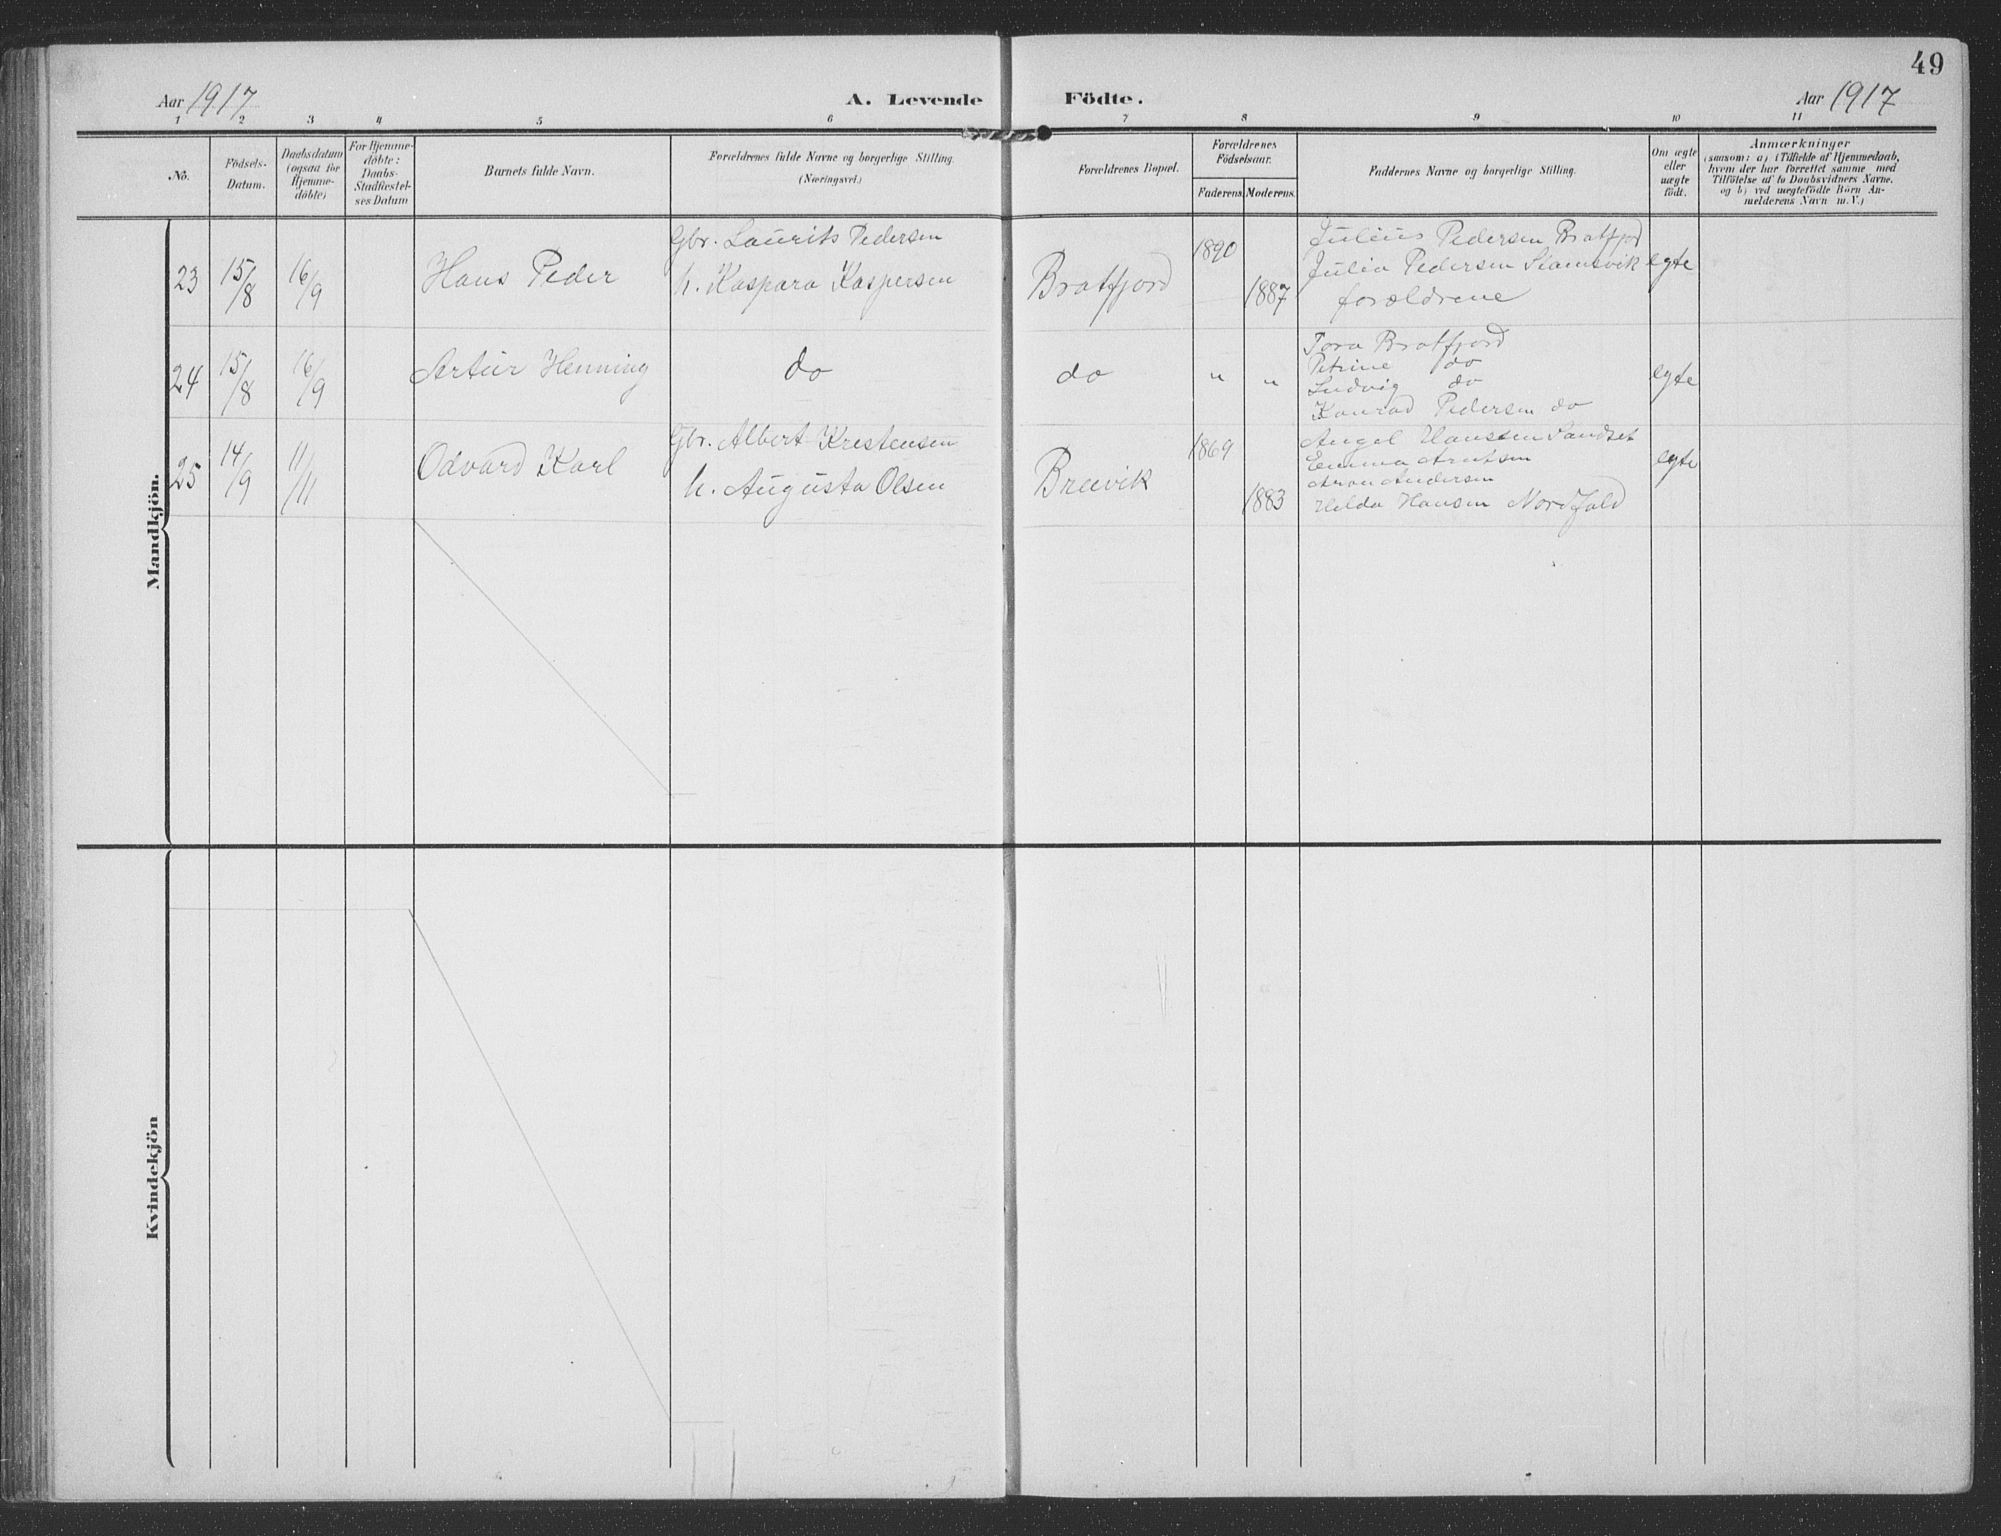 49
Aar 1917
A. Levende Födte.
Aar 1917
1 2 3 4 5 6 7 8 9 10 11
No.
Födsels-
Datum.
Daabsdatum
(ogsaa for
Hjemme-
döbte)
For Hjemme-
döbte:
Daabs-
Stadfæstel-
ses Datum
Barnets fulde Navn.
Forældrenes fulde Navne og borgerlige Stilling.
(Næringsvei.)
Forældrenes Bopæl.
Forældrenes
Födselsaar.
Faderens. Moderens.
Faddernes Navne og borgerlige Stilling.
Om ægte
eller
uægte
födt.
Anmærkninger
(saasom: a) i Tilfælde af Hjemmedaab,
hvem der har forrettet samme med
Tilföielse af to Daabsvidners Navne,
og b) ved uægtefödte Börn An-
melderens Navn m. V.)
Mandkjön.
23 15/8 16/9 Hans Peder
Gbr. Laurits Pedersen
h. Kaspara Kaspersen
Bratfjord
1890
1887
Julius Pedersen Bratfjord
Julia Pedersen Slamsvik
forældrene
egte
24 15/8 16/9 Artur Henning
do
do
" "
Tora Bratfjord
Petrine do
Ludvig do
Konrad Pedersen do
egte
25 14/9 11/11 Odvard Karl
Gbr. Albert Kristensen
h. Augusta Olsen
Breivik
1869
1883
Angel Hansen Sandset
Emma Arntsen
Aron Andersen
Helda Hansen Nordfold
egte
Kvindekjön